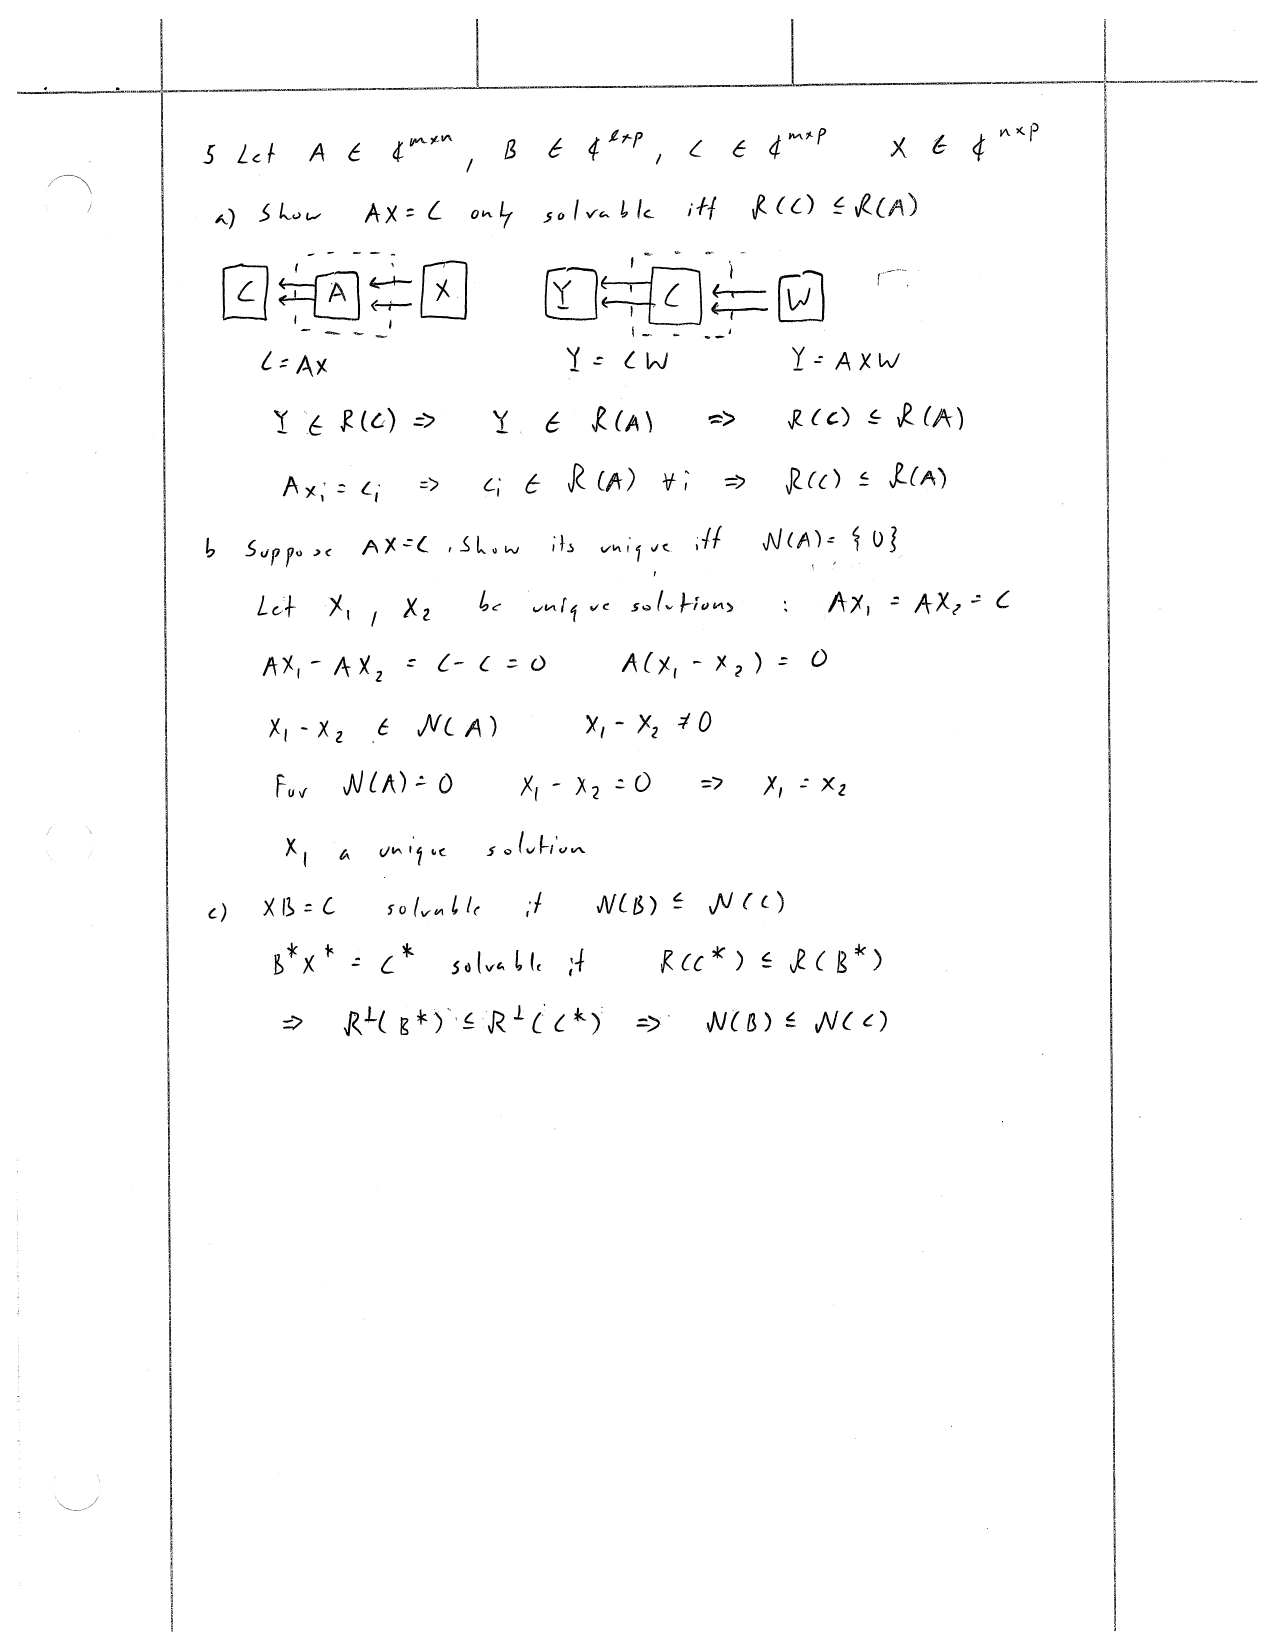 5 Let A ∈ ℂ^{m×n}, B ∈ ℂ^{l×p}, C ∈ ℂ^{m×p} X ∈ ℂ^{n×p}
a) Show AX = C only solvable iff R(C) ⊆ R(A)
C A X Y C W
C = AX Y = CW Y = AXW
Y ∈ R(C) ⇒ Y ∈ R(A) ⇒ R(C) ⊆ R(A)
Ax_i = c_i ⇒ c_i ∈ R(A) ∀i ⇒ R(C) ⊆ R(A)
b Suppose AX = C, Show its unique iff N(A) = {0}
Let X_1, X_2 be unique solutions : AX_1 = AX_2 = C
AX_1 - AX_2 = C - C = 0 A(X_1 - X_2) = 0
X_1 - X_2 ∈ N(A) X_1 - X_2 ≠ 0
For N(A) = 0 X_1 - X_2 = 0 ⇒ X_1 = X_2
X_1 a unique solution
c) XB = C solvable if N(B) ⊆ N(C)
B* X* = C* solvable if R(C*) ⊆ R(B*)
⇒ R^⊥(B*) ⊆ R^⊥(C*) ⇒ N(B) ⊆ N(C)